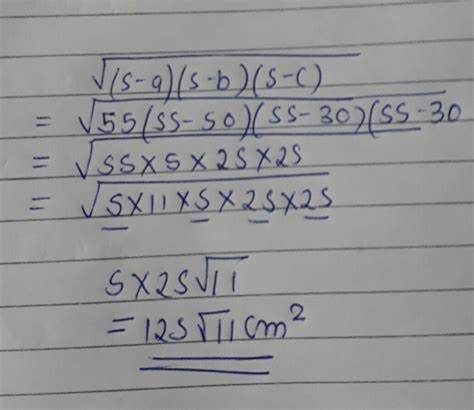 √(s-a)(s-b)(s-c)
= √55(55-50)(55-30)(55-30
= √55×5×25×25
= √5×11×5×25×25
5×25√11
= 125√11 cm²